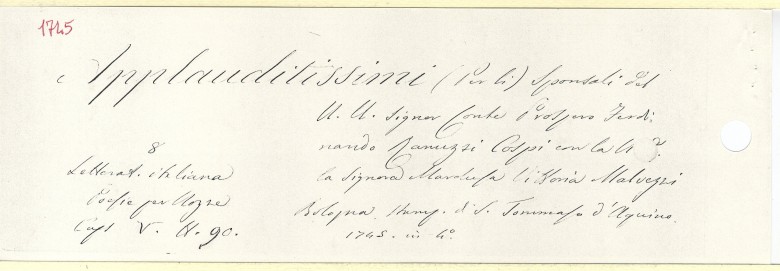 1745
Applauditissimi (Per li) Sponsali del
N. U. Signor Conte Prospero Ferdi-
nando Ranuzzi Cospi con la N. D.
la Signora Marchesa Vittoria Malvezzi
Bologna. Stamp. di S. Tommaso d'Aquino.
1745. in 4º.
8
Letterat. Italiana
Poesie per Nozze
Caps V. N. 90.